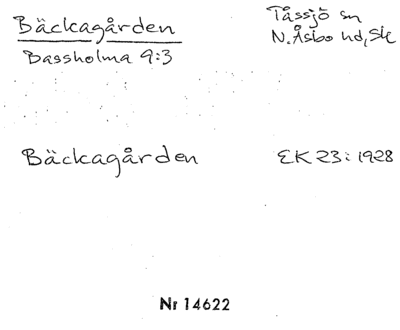 Bäckagården
Tåssjö sn
Bassholma 9:3
N. Åsbo hd, Sk
Bäckagården
EK 23: 1928
Nr 14622